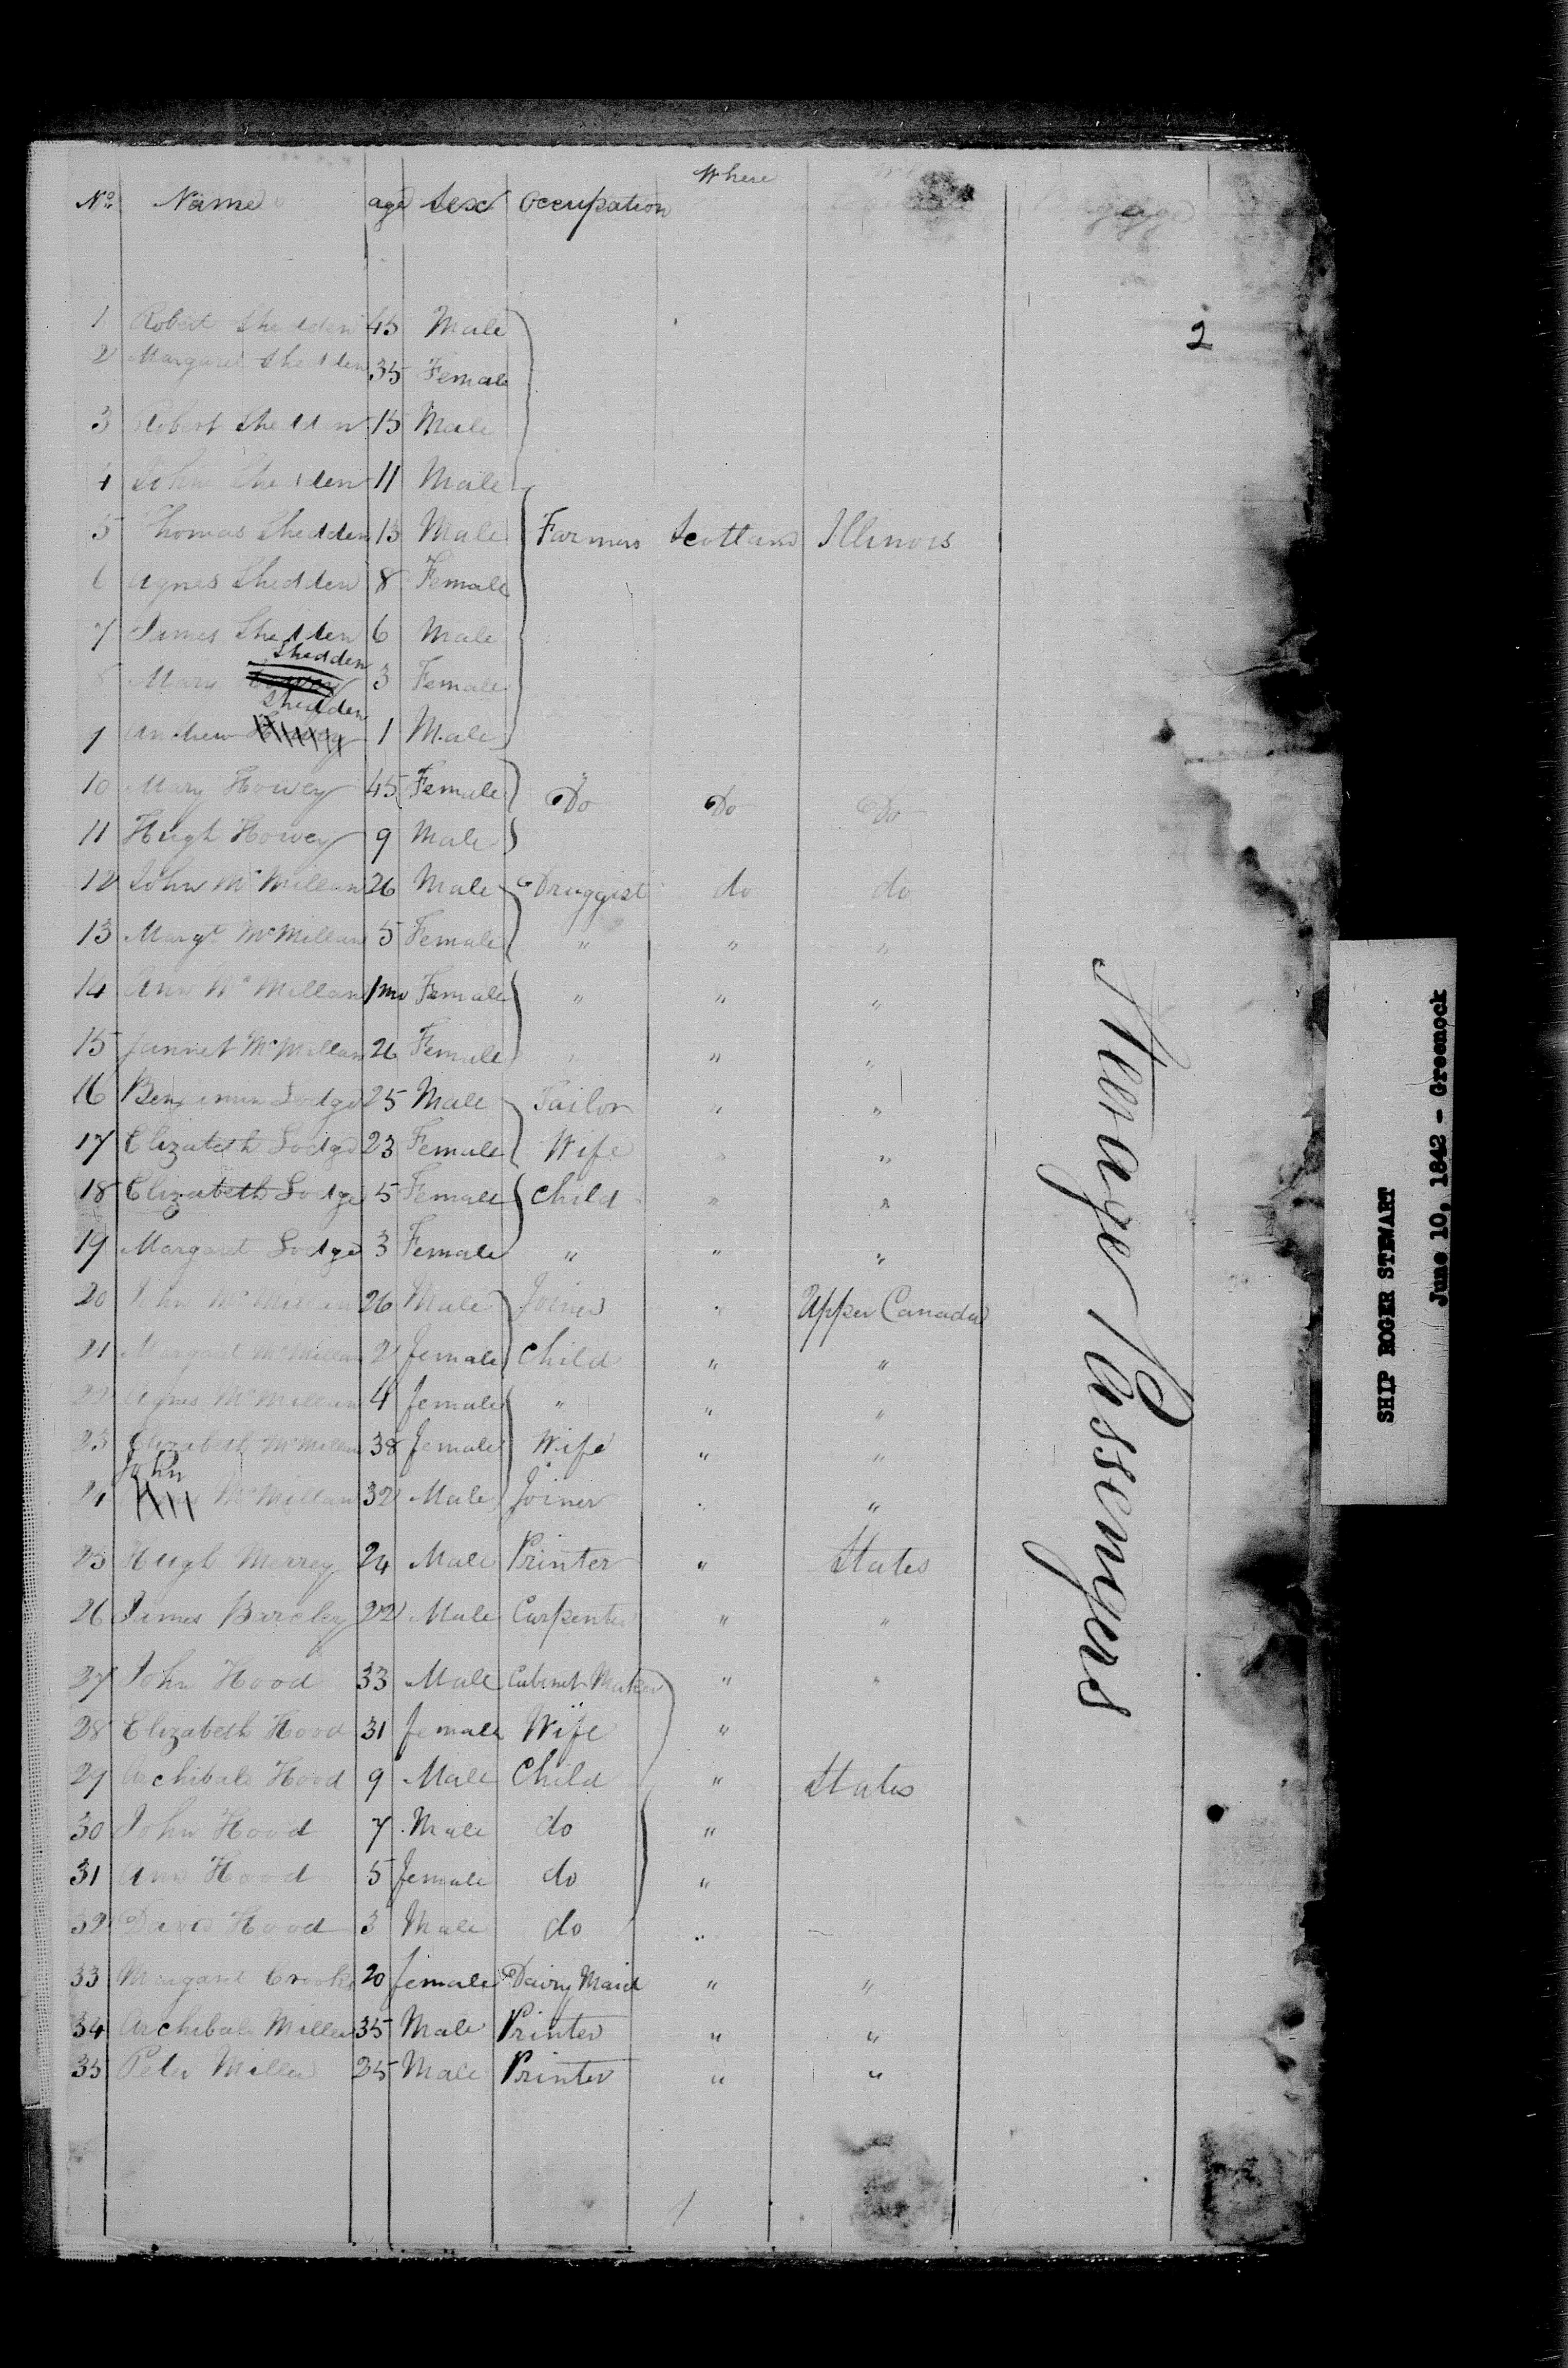 Where
No. Name age Sex Occupation
2
1 Robert Shedden 45 Male
2 Margaret Shedden 35 Female
3 Robert Shedden 15 Male
4 John Shedden 11 Male
5 Thomas Shedden 13 Male Farmers Scotland Illinois
6 Agnes Shedden 8 Female
7 James Shedden 6 Male
Shedden
8 Mary 3 Female
Shedden
9 Andrew 1 Male
10 Mary Howey 45 Female Do Do Do
11 Hugh Howey 9 Male
12 John McMillan 26 Male Druggist do do
13 Margt McMillan 5 Female " " "
14 Ann McMillan 1mo Female " " "
15 Jannet McMillan 26 Female " " "
16 Benjamin Lodge 25 Male Tailor " "
17 Elizabeth Lodge 23 Female Wife " "
18 Elizabeth Lodge 5 Female Child " "
19 Margaret Lodge 3 Female " " "
20 John McMillan 26 Male Joiner " Upper Canada
21 Margaret McMillan 2 female Child " "
22 Agnes McMillan 4 female " " "
23 Elizabeth McMillan 38 female Wife " "
John
24 McMillan 32 Male Joiner " "
25 Hugh Merrey 24 Male Printer " States
26 James Barcley 22 Male Carpenter " "
27 John Hood 33 Male Cabinet Maker " "
28 Elizabeth Hood 31 female Wife "
29 Archibald Hood 9 Male Child " States
30 John Hood 7 Male do "
31 Ann Hood 5 female do "
32 David Hood 3 Male do "
33 Margaret Crooks 20 female Dairy Maid " "
34 Archibald Miller 35 Male Printer " "
35 Peter Miller 25 Male Printer " "
Steerage Passengers
SHIP ROGER STEWART
June 10, 1842 - Greenock